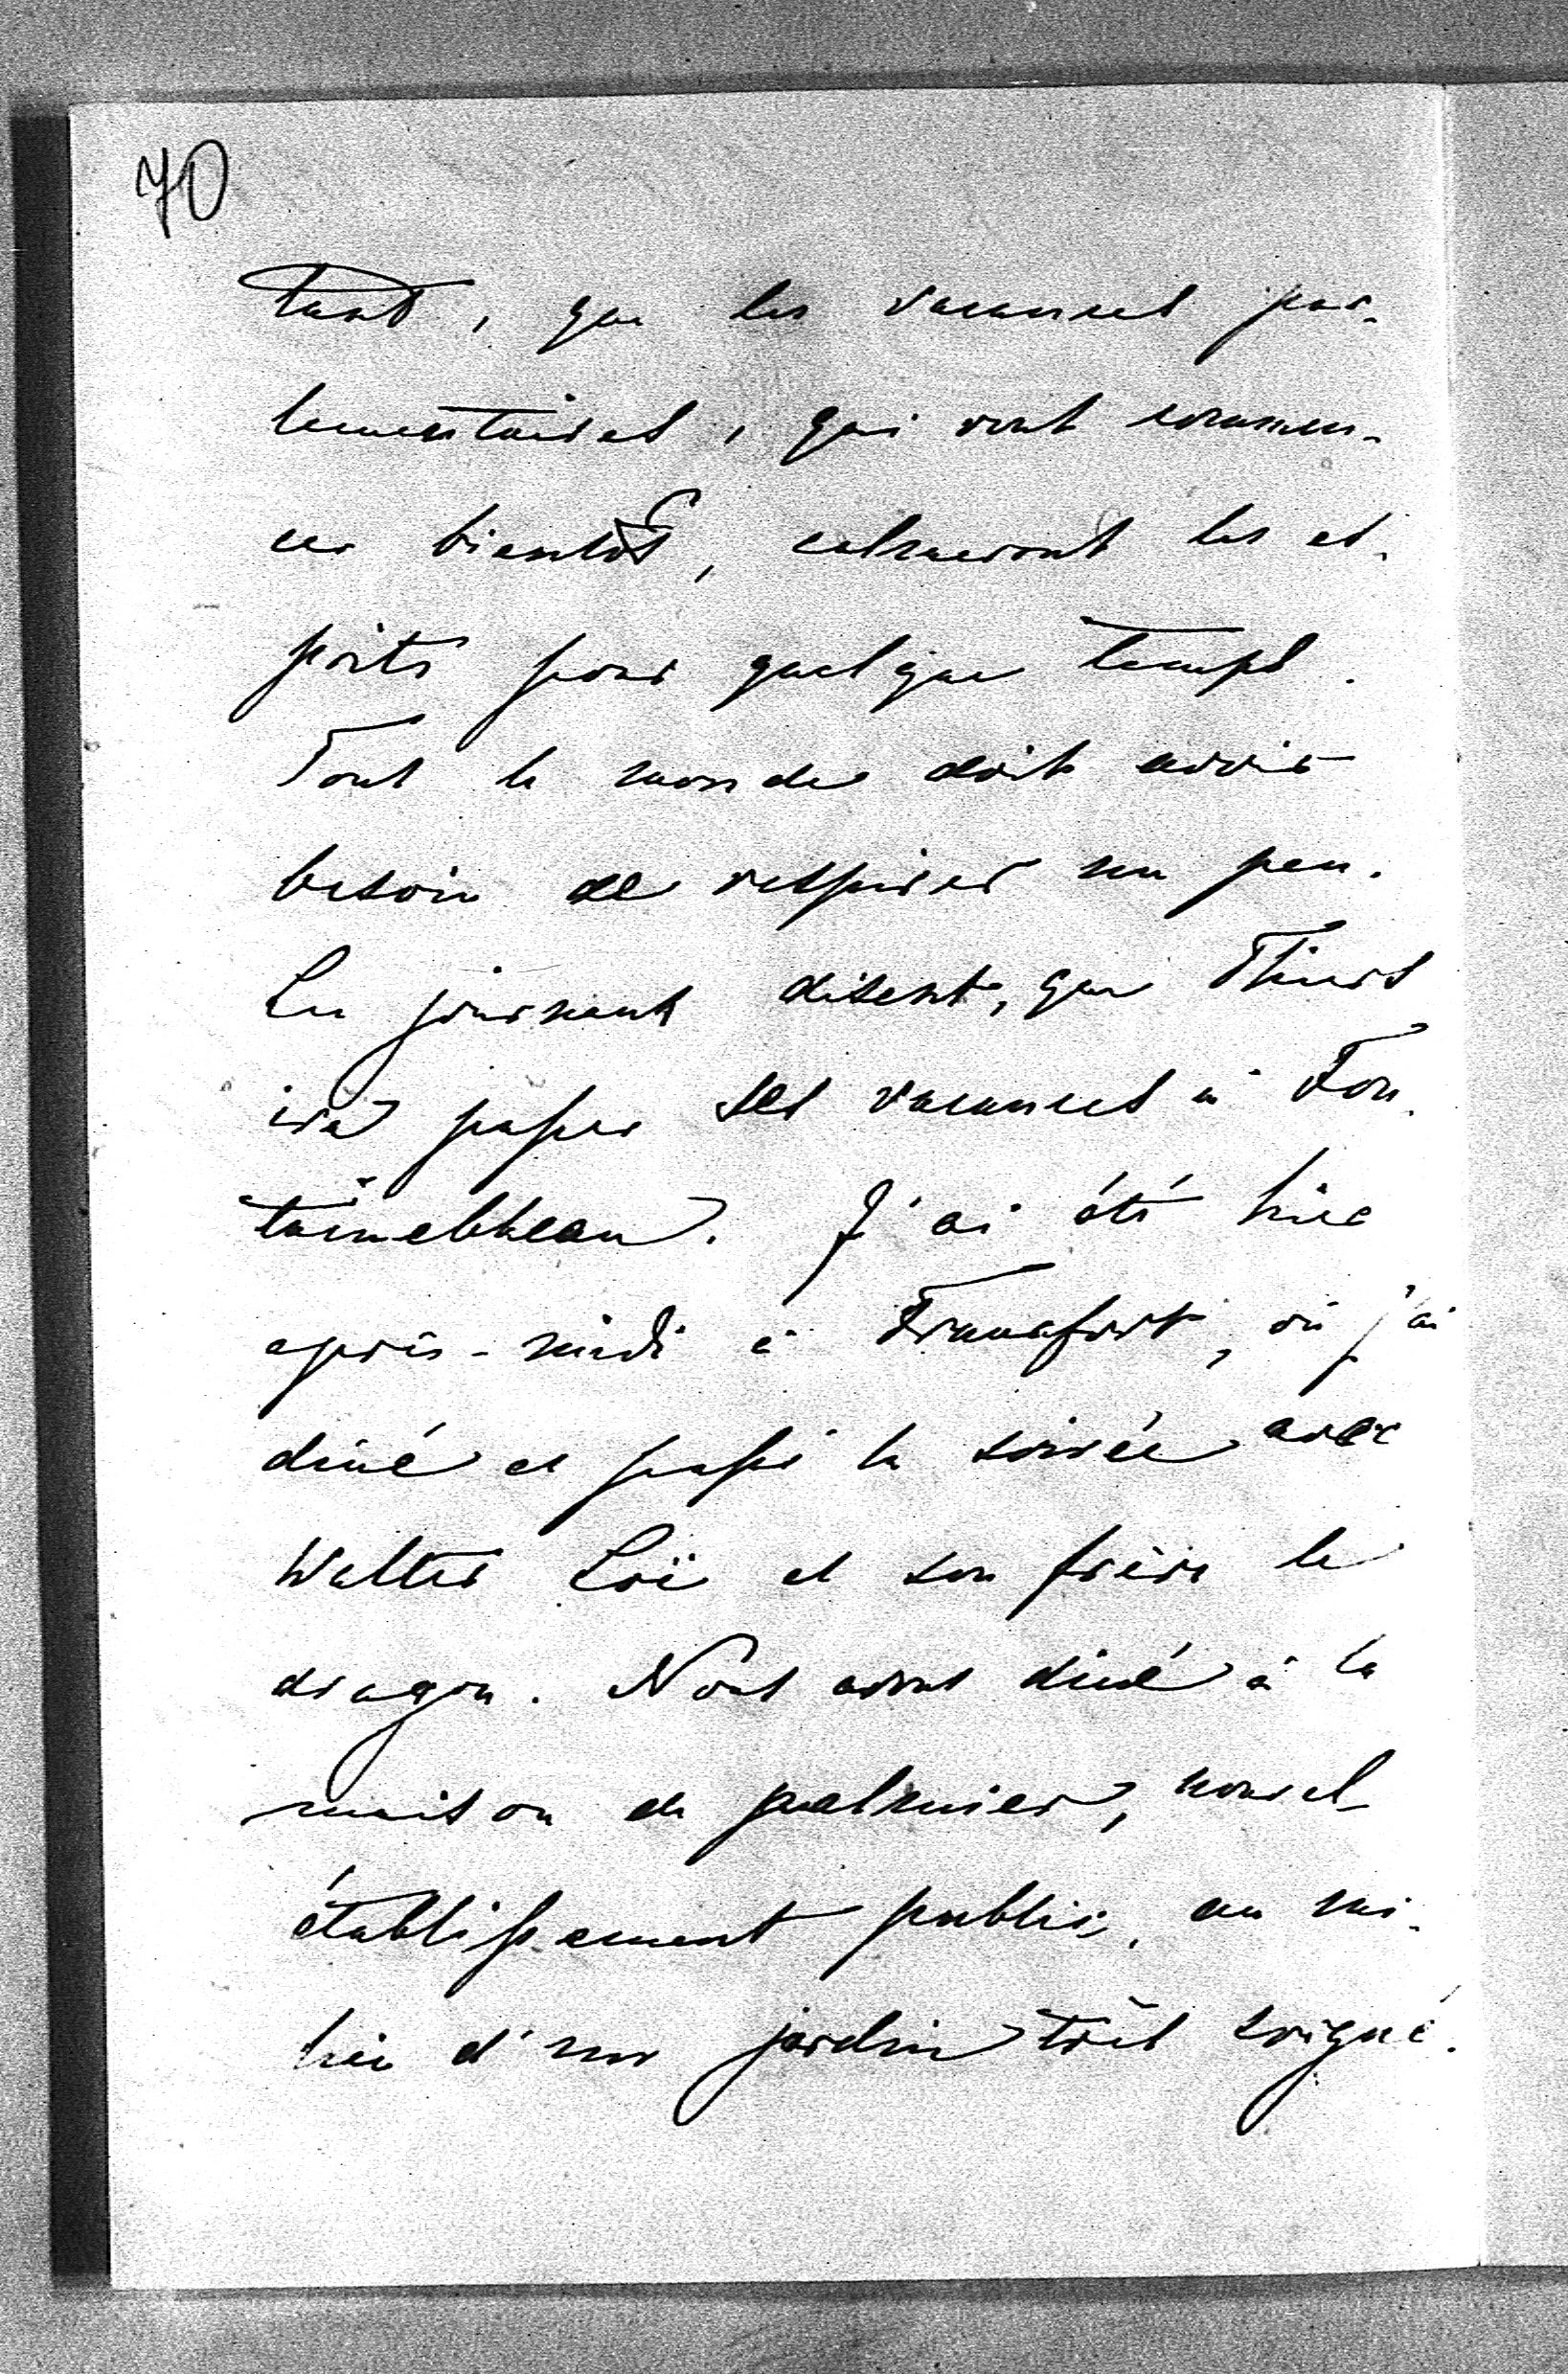 70
tant, que les vacances par-
lementaires, qui vont commen-
cer bientôt, calmeront les es-
prits pour quelque temps.
Tout le monde doit avoir
besoin de respirer un peu.
Les journaux disent, que Thiers
ira passer ses vacances à Fon-
tainebleau. J'ai été hier
après-midi à Francfort, où j'ai
diné et passé la soirée avec
Walter Loë et son frère le
dragon. Nous avons diné à la
maison de palmier, nouvel
établissement public, au mi-
lieu d'un jardin très soigné.